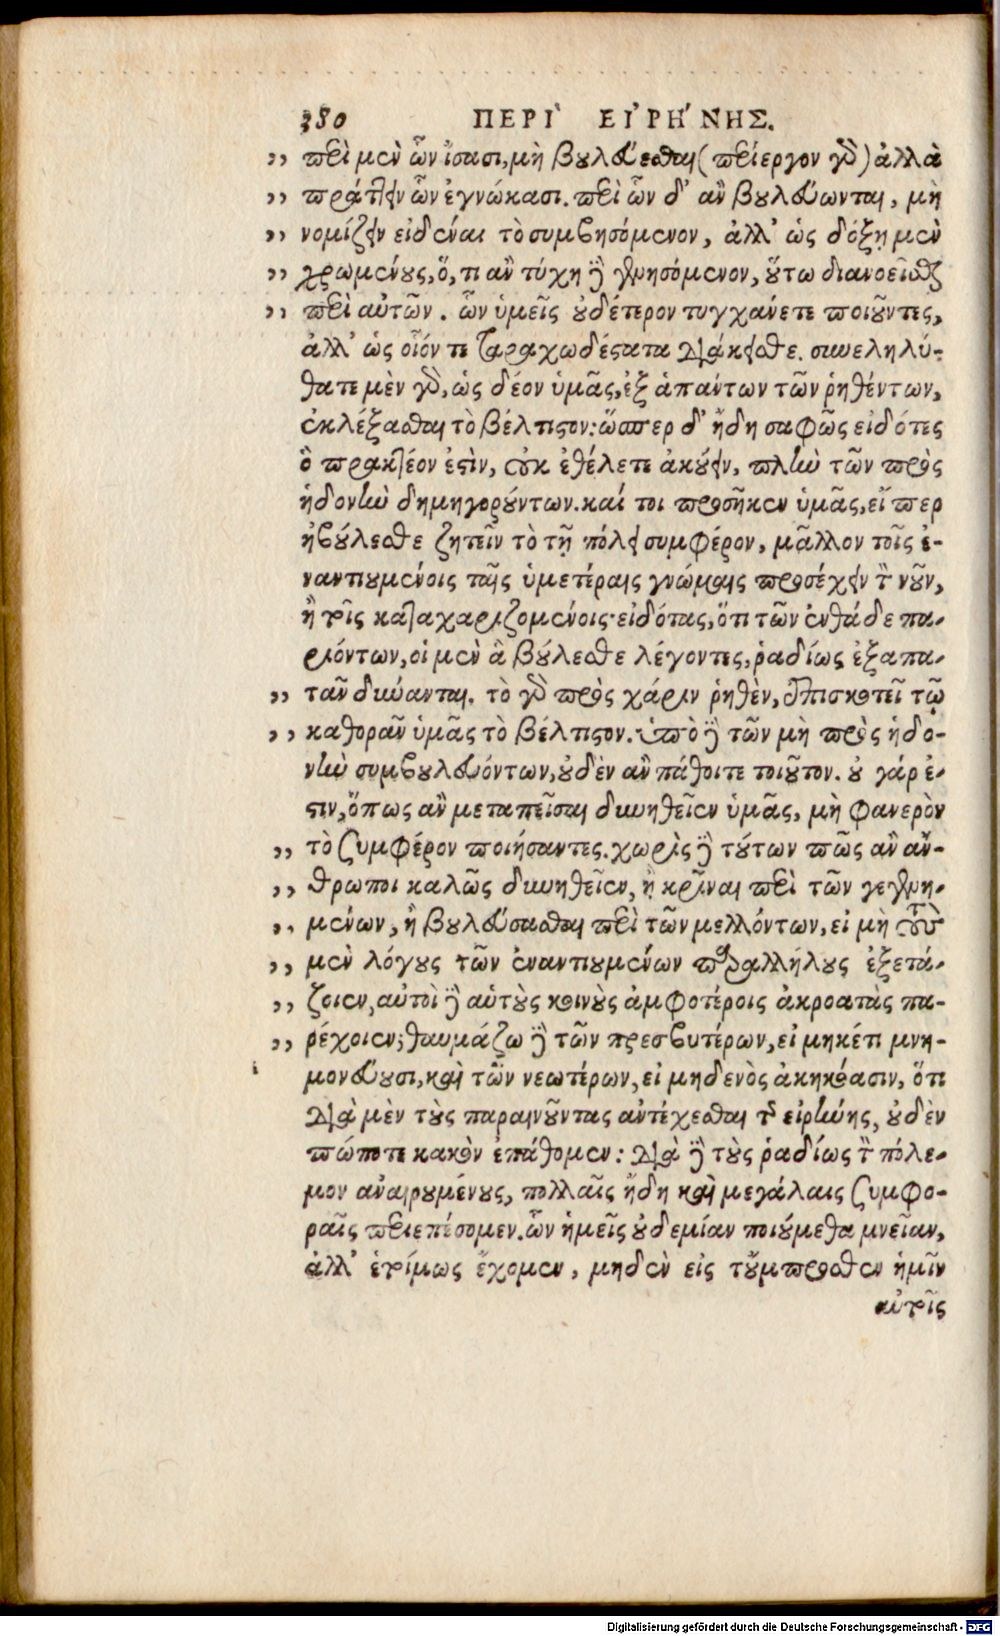 380 ΠΕΡῚ ΕἸΡΉΝΗΣ.
,, περὶ μὲν ὧν ἴσασι, μὴ βουλεύεσθαι (περίεργον γὰρ) ἀλλὰ
,, πράττειν ὧν ἐγνώκασι. περὶ ὧν δ' ἂν βουλεύωνται, μὴ
,, νομίζειν εἰδέναι τὸ συμβησόμενον, ἀλλ' ὡς δόξῃ μὲν
,, χρωμένους, ὅ, τι ἂν τύχῃ δὲ γενησόμενον, οὕτω διανοεῖσθαι
,, περὶ αὐτῶν. ὧν ὑμεῖς οὐδέτερον τυγχάνετε ποιοῦντες,
ἀλλ' ὡς οἷόν τε ταραχωδέστατα διάκεισθε. συνεληλύ-
θατε μὲν γὰρ, ὡς δέον ὑμᾶς, ἐξ ἁπάντων τῶν ῥηθέντων,
ἐκλέξασθαι τὸ βέλτιστον: ὥσπερ δ' ἤδη σαφῶς εἰδότες
ὃ πρακτέον ἐστὶν, οὐκ ἐθέλετε ἀκούειν, πλὴν τῶν πρὸς
ἡδονὴν δημηγορούντων. καί τοι προσῆκεν ὑμᾶς, εἴπερ
ἠβούλεσθε ζητεῖν τὸ τῇ πόλει συμφέρον, μᾶλλον τοῖς ἐ-
ναντιουμένοις ταῖς ὑμετέραις γνώμαις προσέχειν τὸν νοῦν,
ἢ τοῖς καταχαριζομένοις· εἰδότας, ὅτι τῶν ἐνθάδε πα-
ριόντων, οἱ μὲν ἃ βούλεσθε λέγοντες, ῥαδίως ἐξαπα-
,, τᾶν δύνανται. τὸ γὰρ πρὸς χάριν ῥηθὲν, ἐπισκοτεῖ τῷ
,, καθορᾶν ὑμᾶς τὸ βέλτιστον. ὑπὸ δὲ τῶν μὴ πρὸς ἡδο-
νὴν συμβουλευόντων, οὐδὲν ἂν πάθοιτε τοιοῦτον. οὐ γάρ ἐ-
στιν, ὅπως ἂν μεταπεῖσαι δυνηθεῖεν ὑμᾶς, μὴ φανερὸν
,, τὸ ζυμφέρον ποιήσαντες. χωρὶς δὲ τούτων πῶς ἂν ἄν-
,, θρωποι καλῶς δυνηθεῖεν, ἢ κρῖναι περὶ τῶν γεγενη-
,, μένων, ἢ βουλεύσασθαι περὶ τῶν μελλόντων, εἰ μὴ τοὺς
,, μὲν λόγους τῶν ἐναντιουμένων παραλλήλους ἐξετά-
,, ζοιεν, αὐτοὶ δὲ αὑτοὺς κοινοὺς ἀμφοτέροις ἀκροατὰς πα-
,, ρέχοιεν; θαυμάζω δὲ τῶν πρεσβυτέρων, εἰ μηκέτι μνη-
μονεύουσι, καὶ τῶν νεωτέρων, εἰ μηδενὸς ἀκηκόασιν, ὅτι
διὰ μὲν τοὺς παραινοῦντας ἀντέχεσθαι τῆς εἰρήνης, οὐδὲν
πώποτε κακὸν ἐπάθομεν: διὰ δὲ τοὺς ῥαδίως τὸν πόλε-
μον ἀναιρουμένους, πολλαῖς ἤδη καὶ μεγάλαις ζυμφο-
ραῖς περιεπέσομεν. ὧν ἡμεῖς οὐδεμίαν ποιούμεθα μνείαν,
ἀλλ' ἑτοίμως ἔχομεν, μηδὲν εἰς τοὔμπροσθεν ἡμῖν
αὐτοῖς
Digitalisierung gefördert durch die Deutsche Forschungsgemeinschaft - DFG